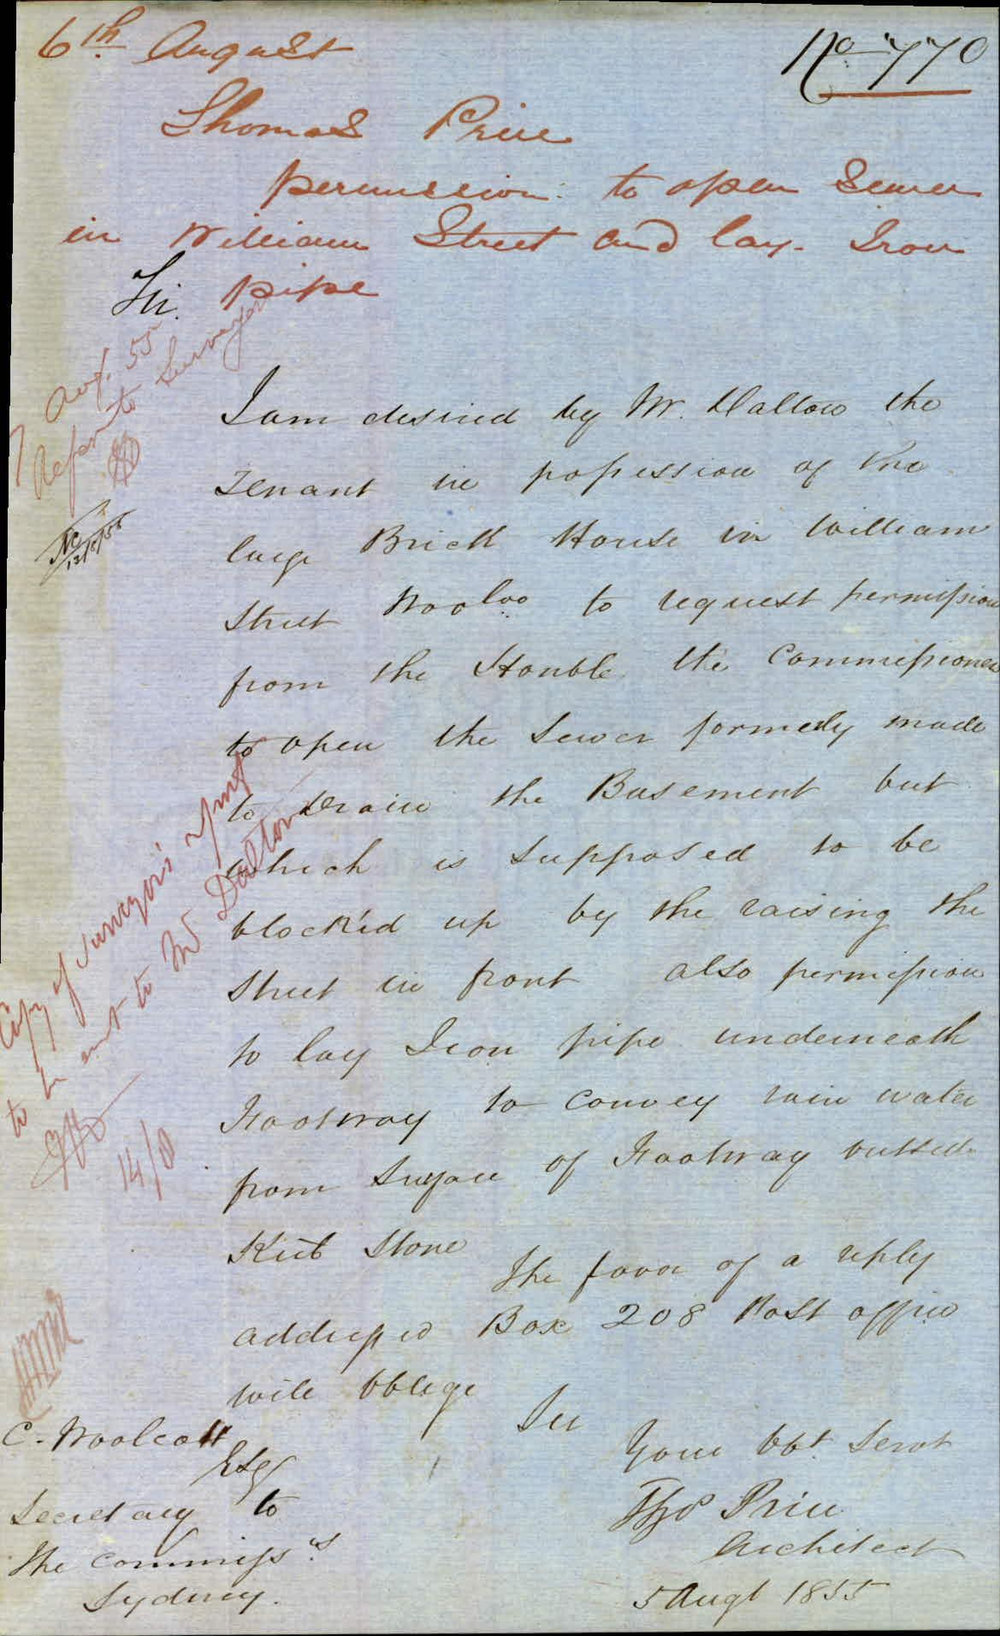 6th August
No 770
Thomas Price
permission to open Sewer
in William Street and lay Iron
pipe
Sir.
7 Aug. 55
Refer to Surveyor
13/8/55
I am desired by Mr. Dalton the
Tenant in possession of the
large Brick House in William
Street Wooloo to request permission
from the Honble the Commissioners
to open the Sewer formerly made
to Drain the Basement but
which is supposed to be
block'd up by the raising the
Street in front also permission
to lay Iron pipe underneath
Footway to convey rain water
from Surface of Footway outside
Kirb Stone
The favor of a reply
addressed Box 208 Post office
will oblige
Sir
Your Obt Servt
Thos Price
Architect
5 Augt 1855
Copy of Surveyor's report
to be sent to Mr Dalton
14/8
C. Woolcott
Esqr
Secretary to
the Commissrs
Sydney.